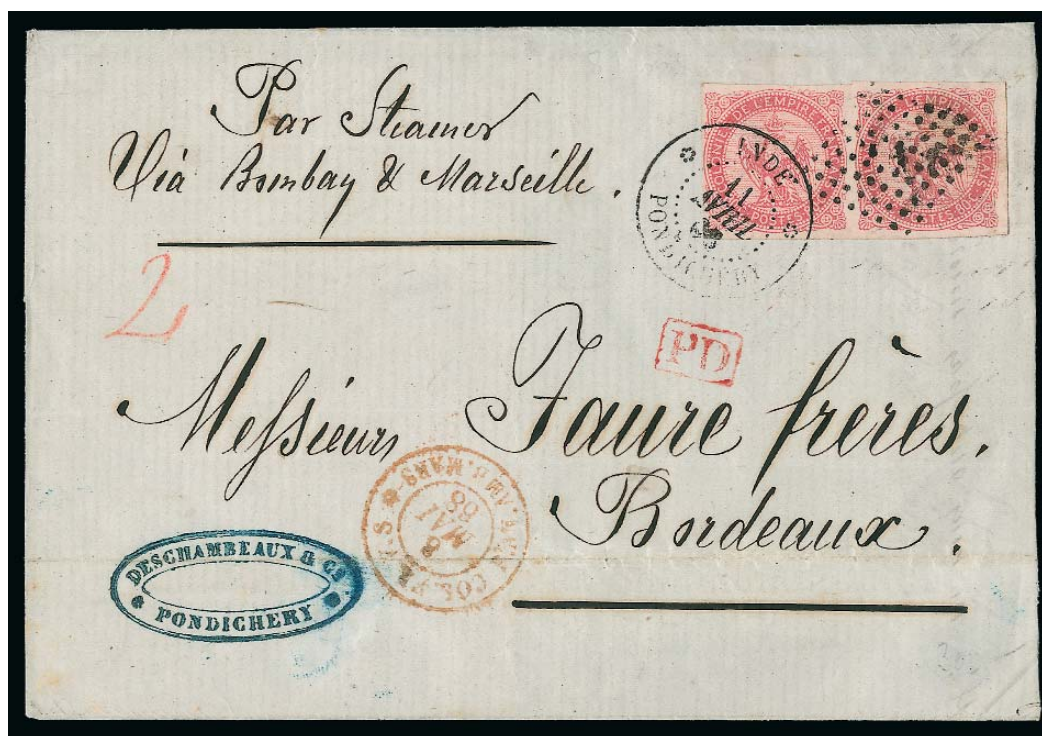 Par Steamer
Viâ Bombay & Marseille.
COLONIES DE L'EMPIRE FR
POSTES
INDE
11
AVRIL
68
PONDICHERY
2
PD
Messieurs Faure frères.
Bordeaux.
COL. FR.
MARS
8
MAI
68
DESCHAMBEAUX & Cie
PONDICHERY